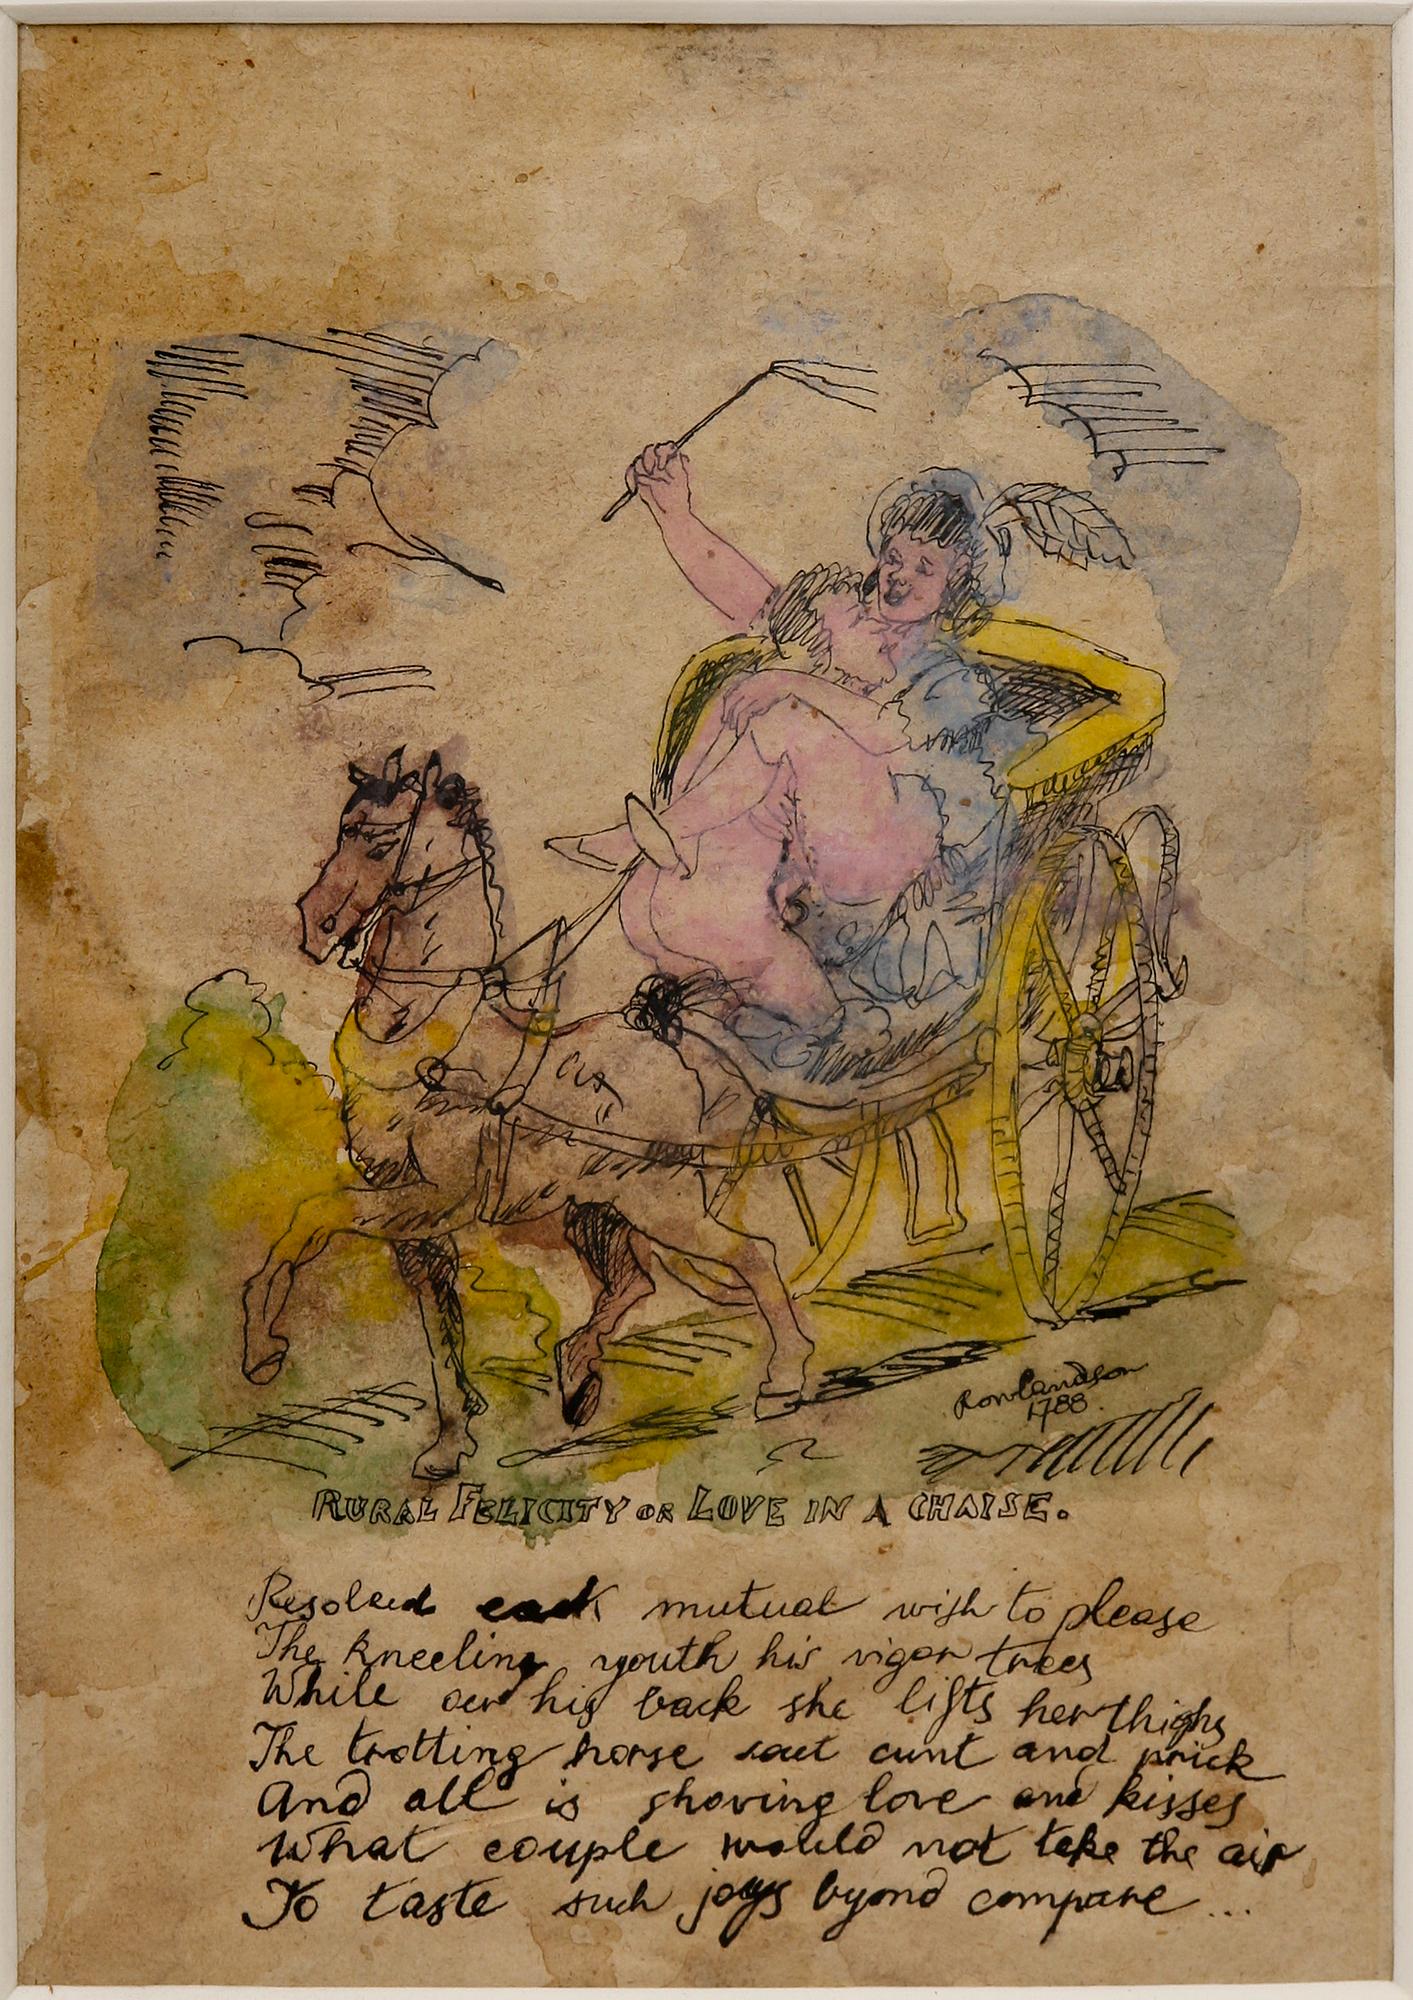 Rowlandson
1788.
RURAL FELICITY OR LOVE IN A CHAISE.
Resolved each mutual wish to please
The kneeling youth his vigor trees
While oer his back she lifts her thighs
The trotting horse cunt and prick
And all is shoving love and kisses
What couple would not take the air
To taste such joys byond compare ...